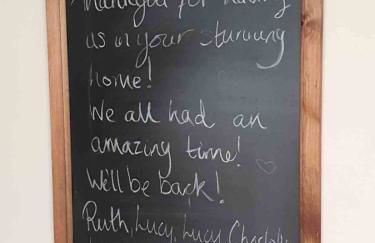 for having
us in your stunning
home!
We all had an
amazing time! ♡
We'll be back!
Ruth, Lucy, Lucy, Charlotte